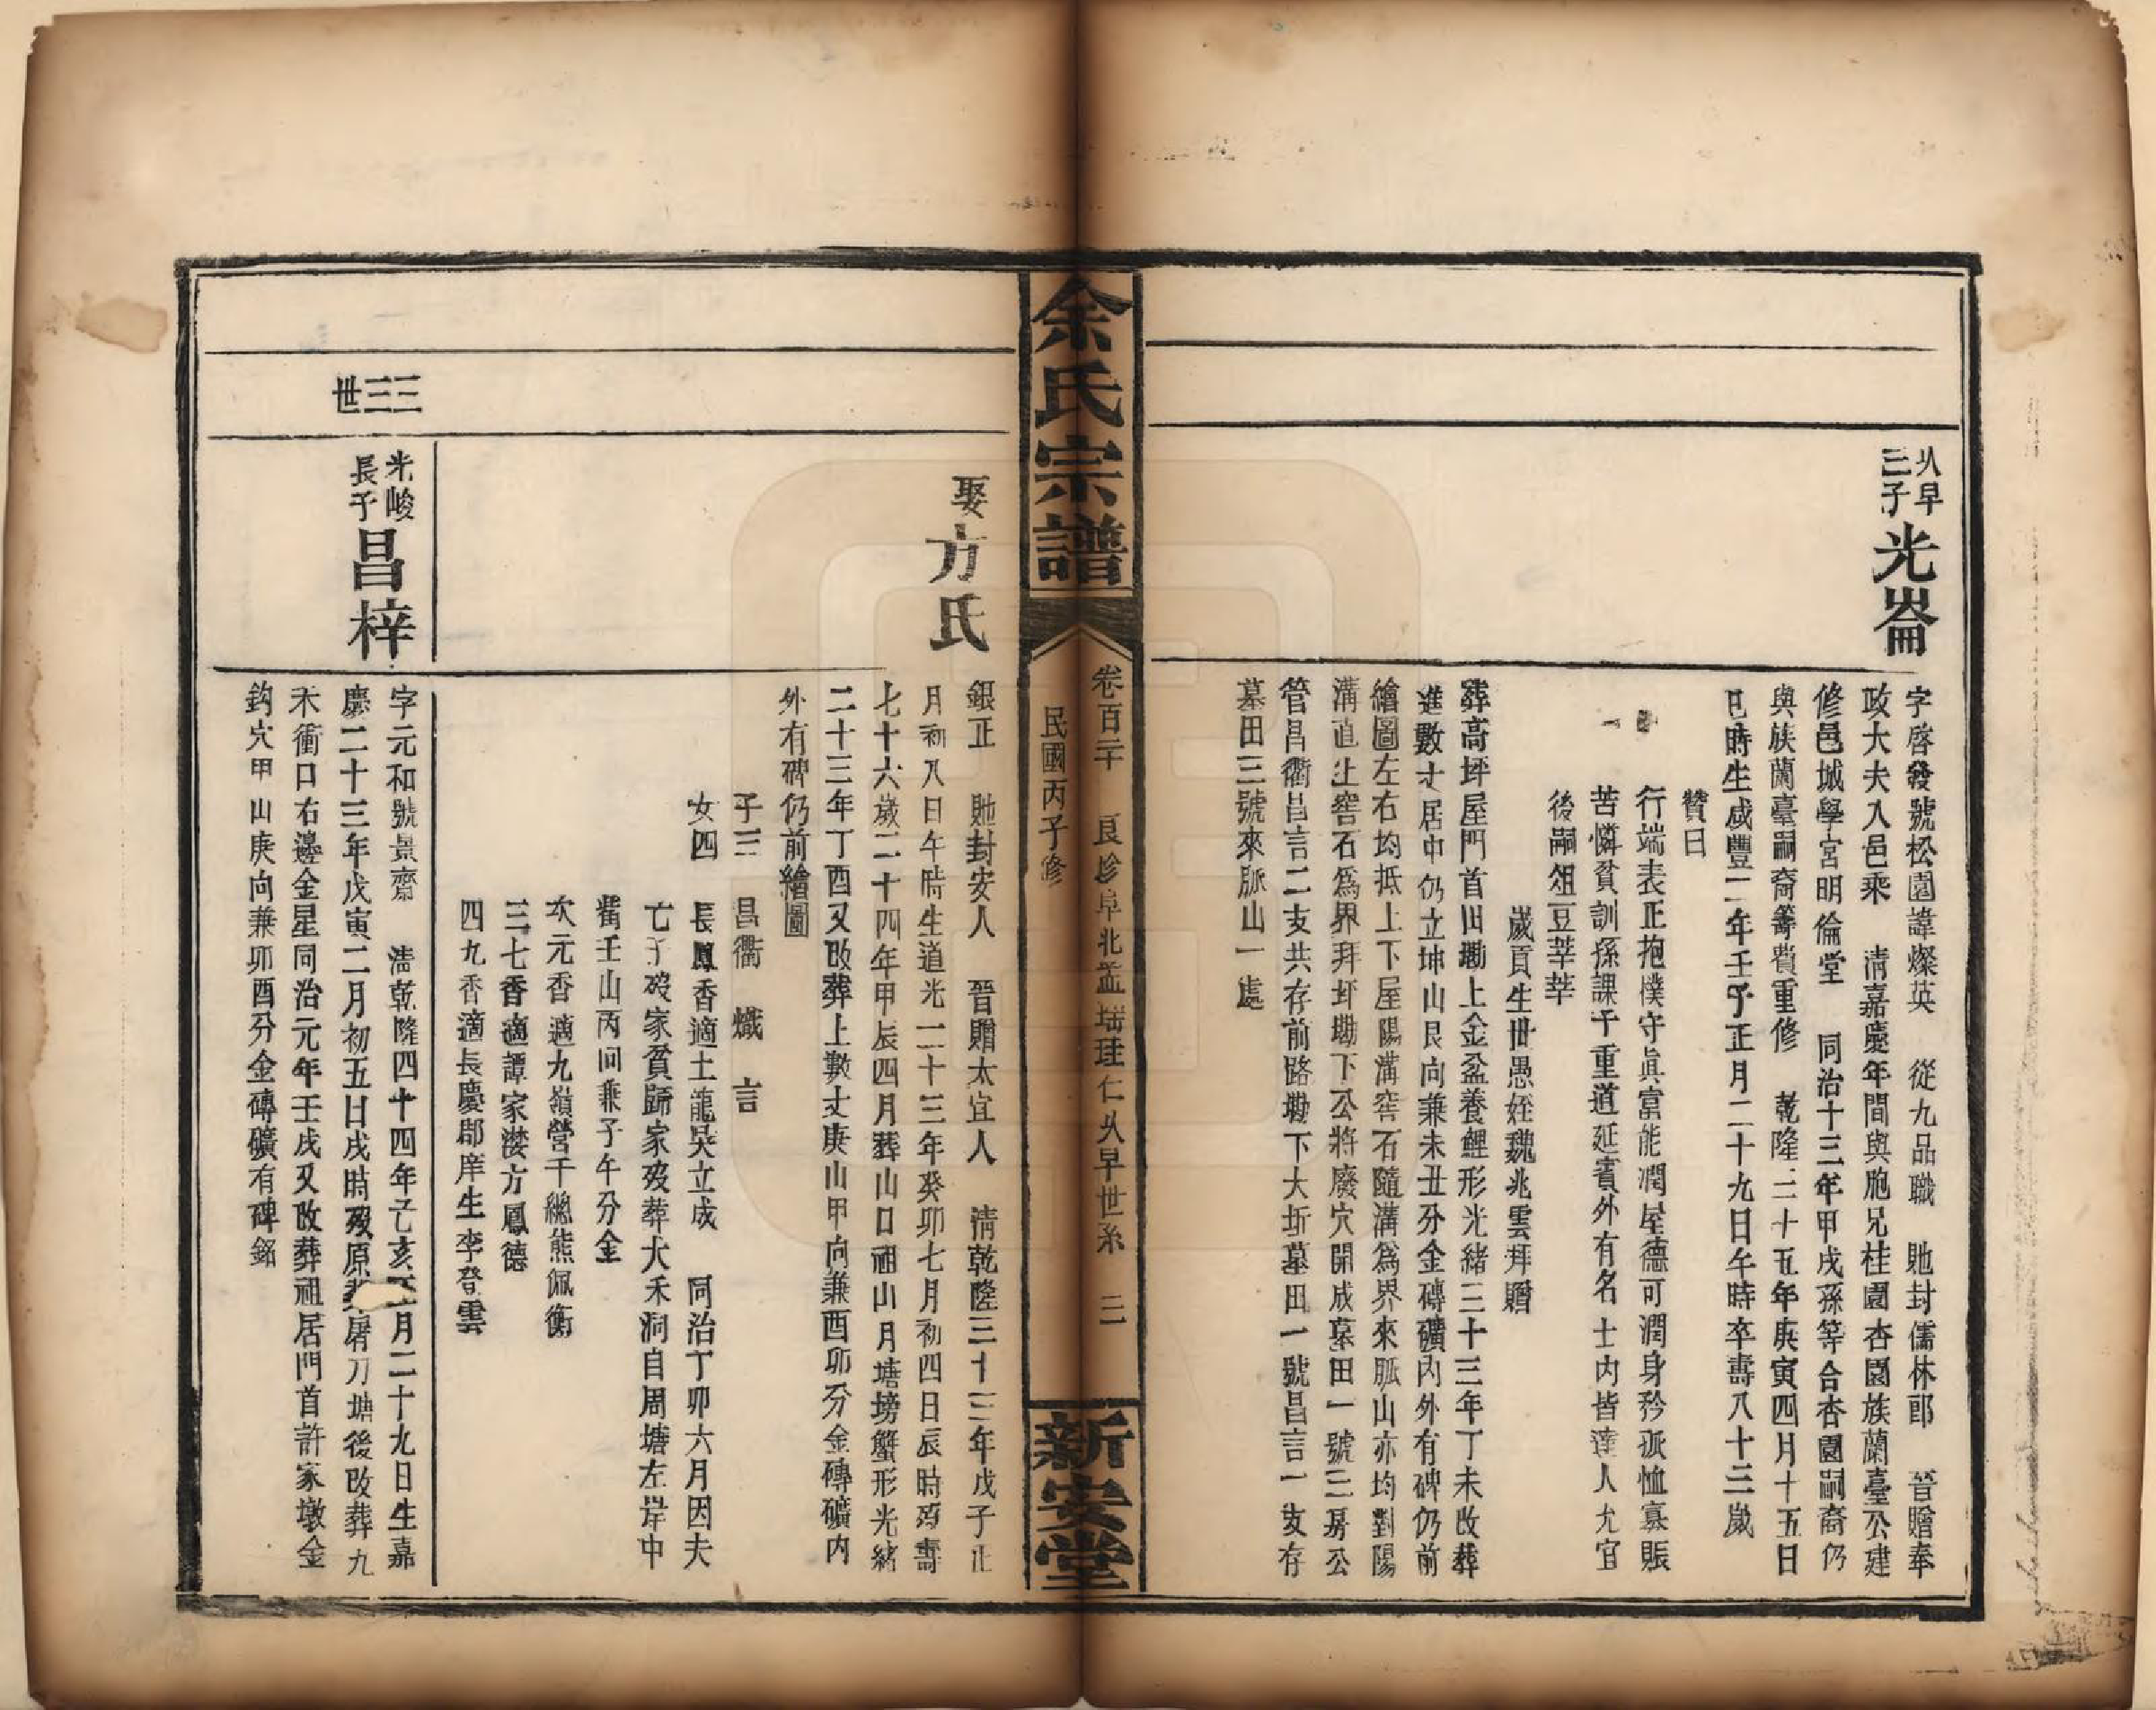 乆早
三子
光崙
字啓發號松園諱燦英　從九品職　貤封儒林郎　晉贈奉
政大夫入邑乘　清嘉慶年間與胞兄桂園杏園族蘭臺公建
修邑城學宮明倫堂　同治十三年甲戌孫等合杏園嗣裔仍
與族蘭臺嗣裔籌貲重修　乾隆三十五年庚寅四月十五日
巳時生咸豐二年壬子正月二十九日午時卒壽八十三歲
贊曰
行端表正抱樸守眞富能潤屋德可潤身矜孤恤寡賑
苦憐貧訓孫課子重道延賓外有名士內皆達人尤宜
後嗣俎豆莘莘
歲貢生世愚姪魏兆雲拜贈
葬高坪屋門首田墈上金盆養鯉形光緒三十三年丁未改葬
進數丈居中仍立坤山艮向兼未丑分金磚礦內外有碑仍前
繪圖左右均抵上下屋陽溝窖石隨溝爲界來脈山亦均對陽
溝直上窖石爲界拜圷墈下公將廢穴開成墓田一號三房公
管昌衢昌言二支共存前路墈下大圻墓田一號昌言一支存
墓田三號來脈山一處
余氏宗譜
卷百二十　艮珍阜北孟瑞珪仁乆早世系　三
民國丙子修
新安堂
娶
方氏
銀正　貤封安人　晉贈太宜人　清乾隆三十三年戊子正
月初八日午時生道光二十三年癸卯七月初四日辰時歿壽
七十六歲二十四年甲辰四月葬山口祖山月塘塝蟹形光緒
二十三年丁酉又改葬上數丈庚山甲向兼酉卯分金磚礦內
外有碑仍前繪圖
子三　昌衢　熾　言
女四　長鳳香適土龍吳立成　同治丁卯六月因夫
亡子破家貧歸家歿葬大禾洞自周塘左岸中
觜壬山丙向兼子午分金
次元香適九嶺營千總熊佩衡
三七香適譚家漤方鳳德
四九香適長慶郡庠生李登雲
三三世
光峻
長子
昌梓
字元和號景齋　清乾隆四十四年己亥正月二十九日生嘉
慶二十三年戊寅二月初五日戌時歿原葬屠刀塘後改葬九
禾衝口右邊金星同治元年壬戌又改葬祖居門首許家墩金
鈎穴甲山庚向兼卯酉分金磚礦有碑銘